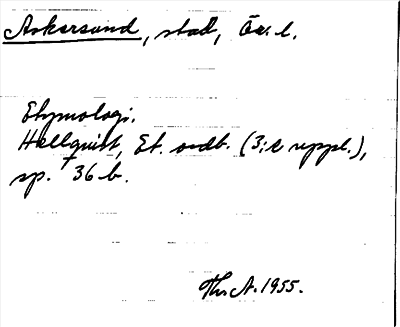 Askersund, stad, Ör. l.
Etymologi.
Hellquist, Et. ordb. (3:e uppl.),
sp. 36 b.
Thr A. 1955.